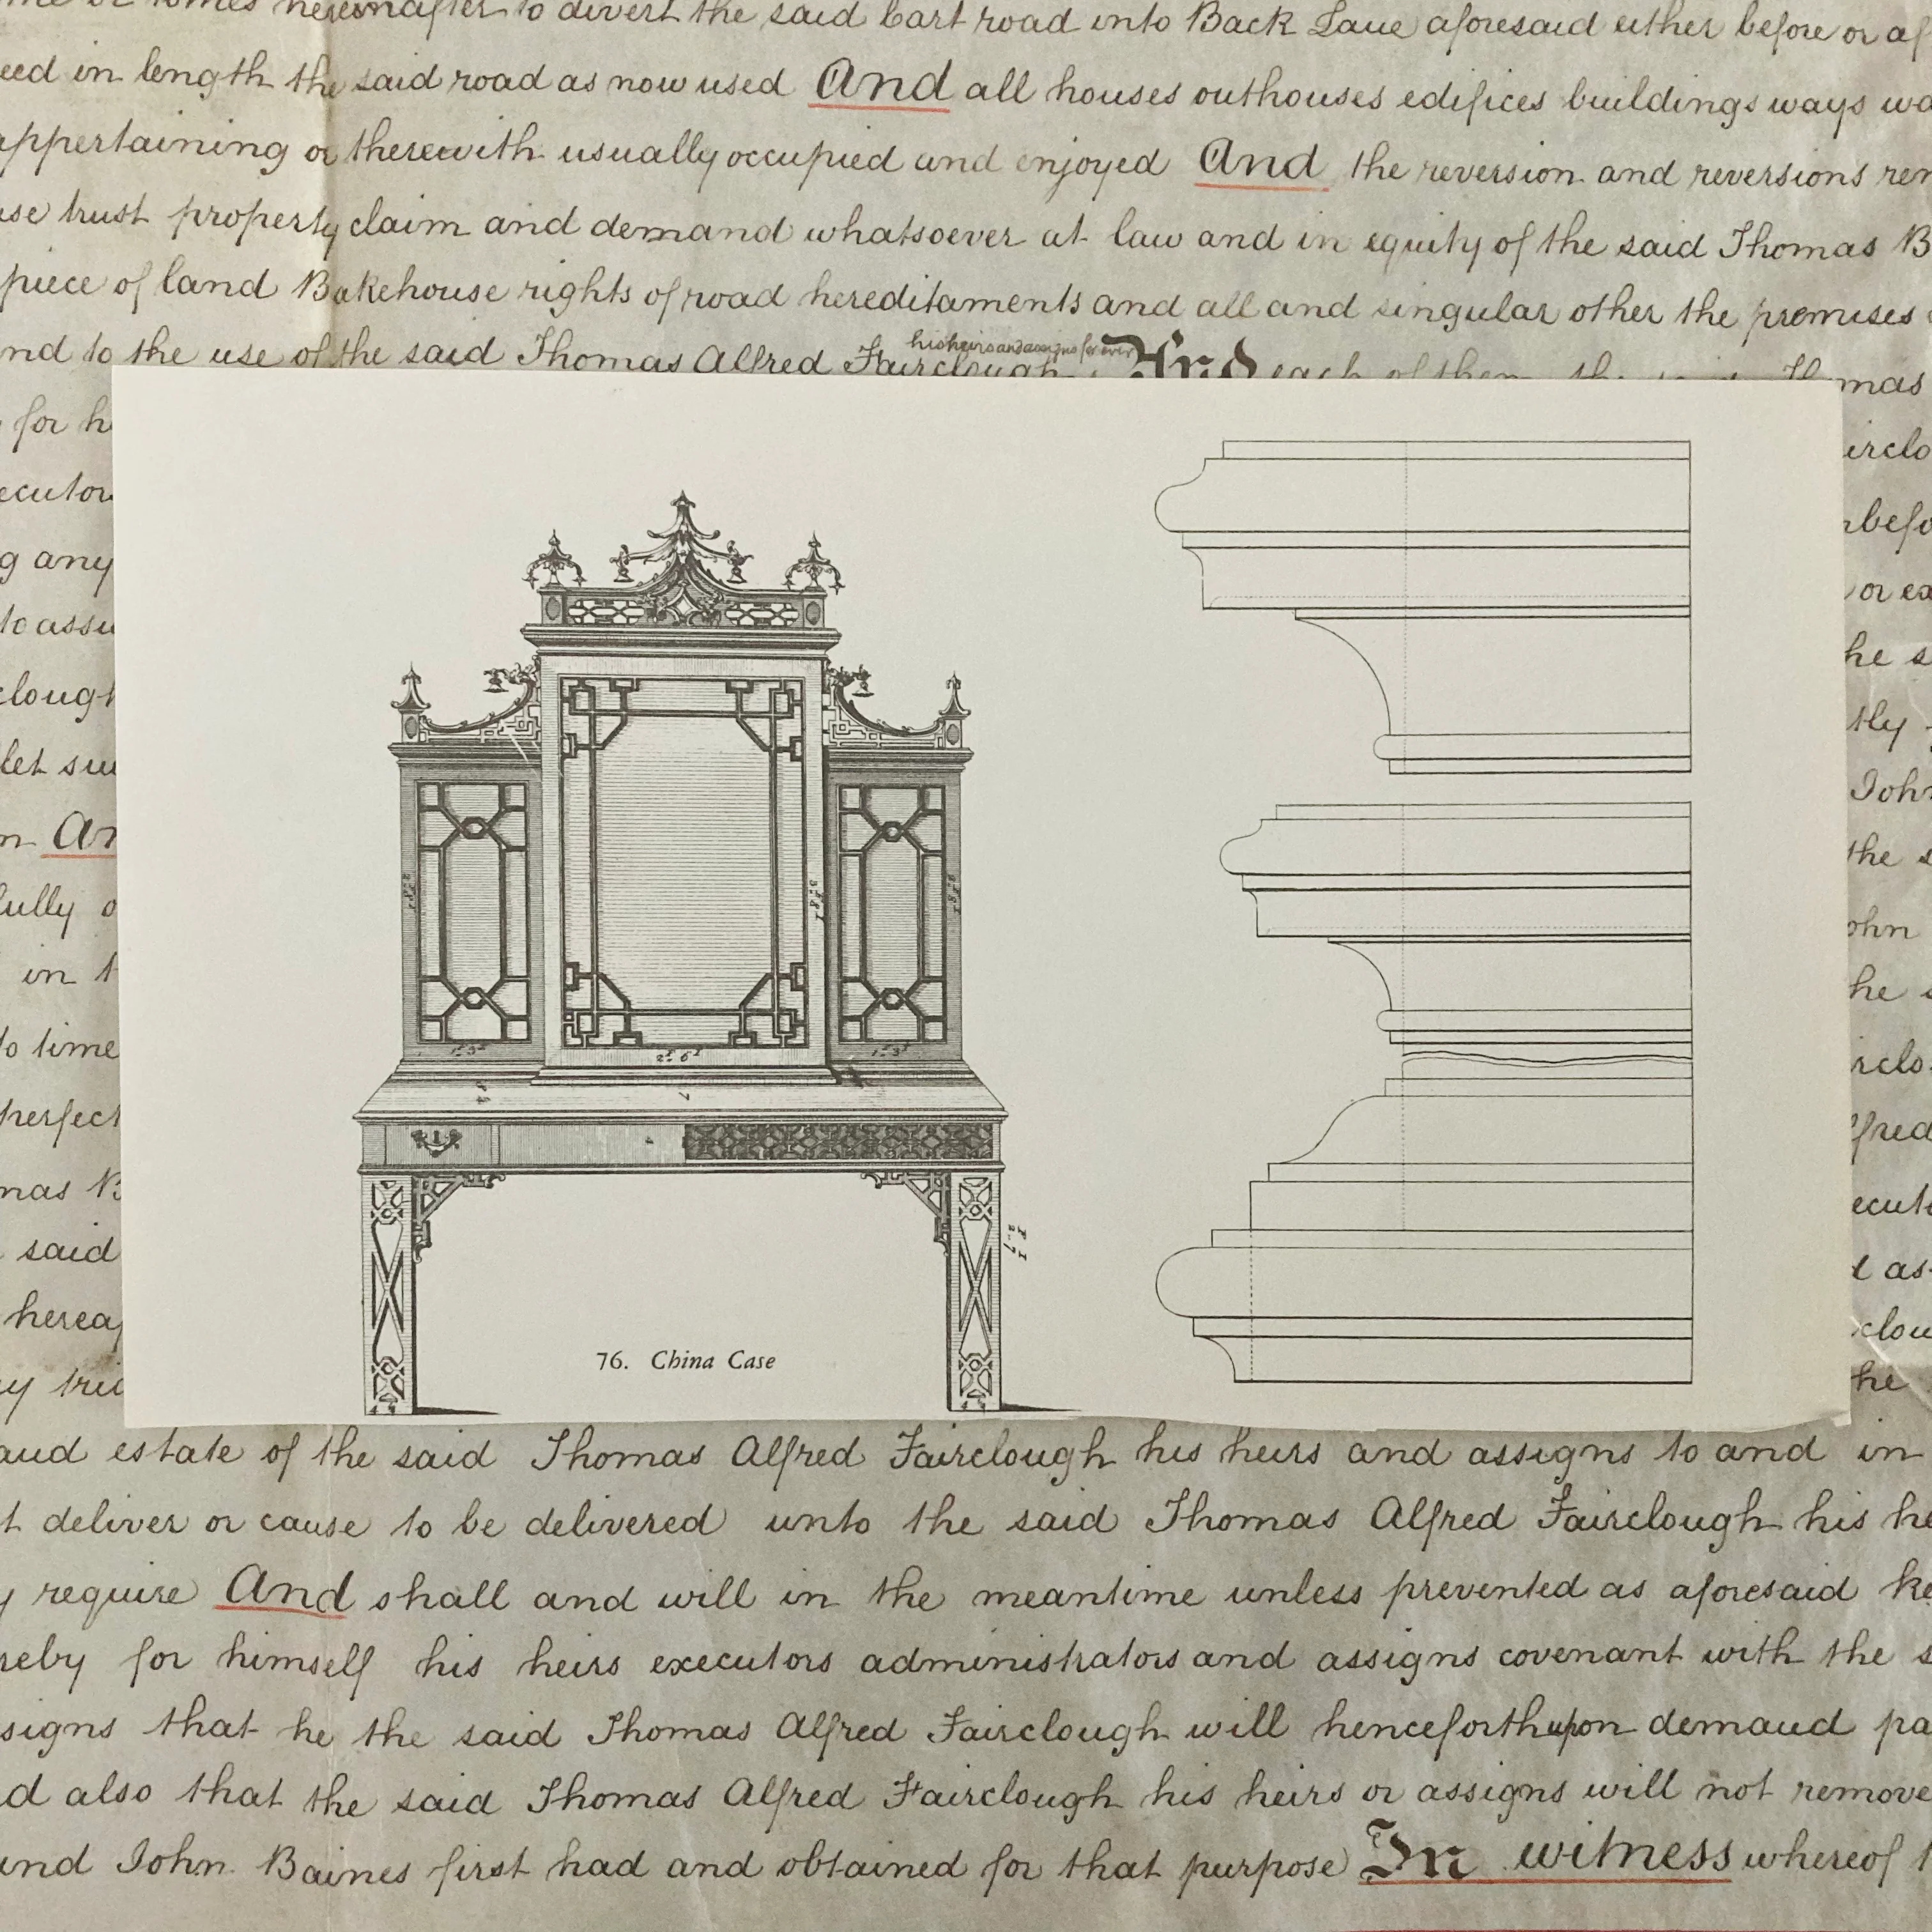 hereinafter to divert the said Cart road into Back Lane aforesaid either before or
in length the said road as now used And all houses outhouses edifices buildings ways
appertaining or therewith usually occupied and enjoyed And the reversion and reversions
trust property claim and demand whatsoever at law and in equity of the said Thomas B
piece of land Bakehouse rights of road hereditaments and all and singular other the premises
his heirs and assigns for ever
nd to the use of the said Thomas Alfred Fairclough And each of them the Thomas
for h
irclo
ecutor
befo
g any
or ex
to assu
he s
clough
tly
let su
John
n An
the s
fully o
ohn
in t
he s
to time
irclo
perfect
lfred
mas B
ecut
said
as
herea
clou
y tru
he
76. China Case
and estate of the said Thomas Alfred Fairclough his heirs and assigns to and in
t deliver or cause to be delivered unto the said Thomas Alfred Fairclough his he
y require And shall and will in the meantime unless prevented as aforesaid ke
reby for himself his heirs executors administrators and assigns covenant with the s
signs that he the said Thomas Alfred Fairclough will henceforth upon demand pa
d also that the said Thomas Alfred Fairclough his heirs or assigns will not remove
and John Baines first had and obtained for that purpose In witness whereof t